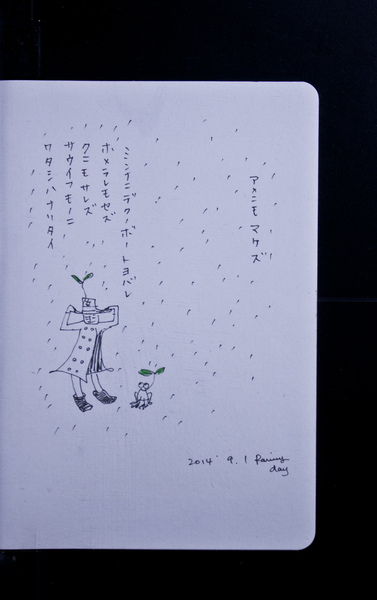 アメニモ マケズ
ミンナニデクノボートヨバレ
ホメラレモセズ
クニモサレズ
サウイフモノニ
ワタシハナリタイ
2014 9.1 Rainy
day